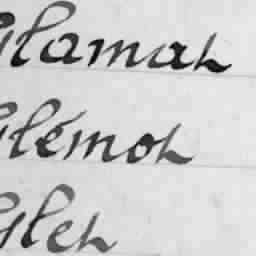 Glamat
Glémot
Glet